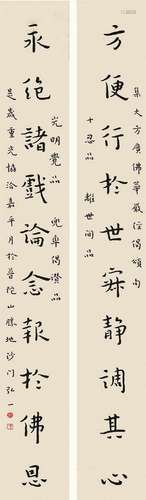 集大方廣佛華嚴經偈頌句
方便行於世寂静調其心
十忍品 離世間品
光明覺品 兜率偈讚品
永絕諸戲論念報於佛恩
是歲重光協洽嘉平月於普陀山勝地沙门弘一